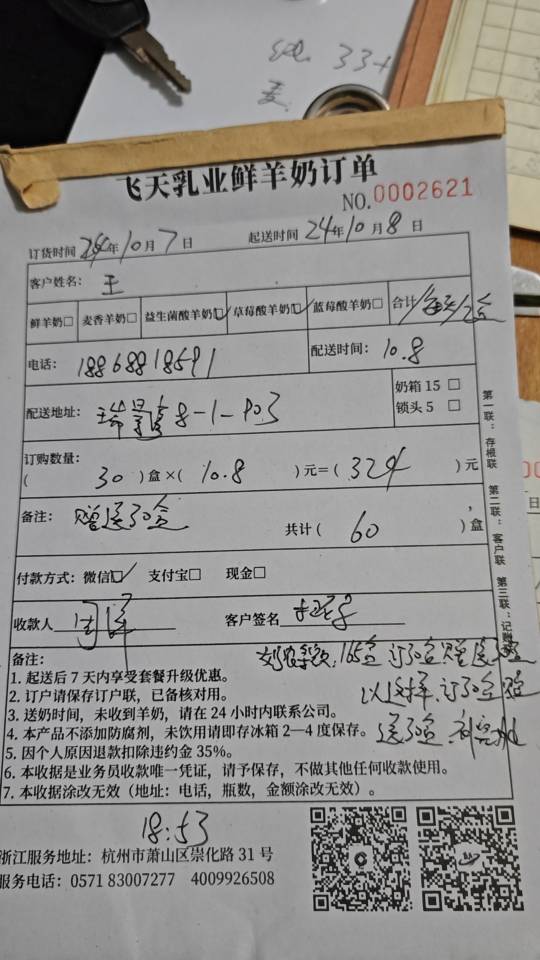 33+
飞天乳业鲜羊奶订单
NO.0002621
订货时间 24年10月7日 起送时间 24年10月8日
客户姓名： 王
鲜羊奶□ 麦香羊奶□ 益生菌酸羊奶☑ 草莓酸羊奶☑ 蓝莓酸羊奶□ 合计
电话： 18868818591 配送时间： 10.8
配送地址： 8-1-903 奶箱 15 □
锁头 5 □
订购数量：
( 30 )盒×( 10.8 )元=( 324 )元
备注： 赠送30盒 共计( 60 )盒
付款方式：微信☑ 支付宝□ 现金□
收款人 客户签名
第一联：存根联 第二联：客户联 第三联：记账
备注：
165盒 订30盒赠送
1. 起送后 7 天内享受套餐升级优惠。
以这样 订30盒赠
2. 订户请保存订户联，已备核对用。
3. 送奶时间，未收到羊奶，请在 24 小时内联系公司。
送30盒
4. 本产品不添加防腐剂，未饮用请即存冰箱 2—4 度保存。
5. 因个人原因退款扣除违约金 35%。
6. 本收据是业务员收款唯一凭证，请予保存，不做其他任何收款使用。
7. 本收据涂改无效（地址：电话，瓶数，金额涂改无效）。
18:53
浙江服务地址：杭州市萧山区崇化路 31 号
服务电话：0571 83007277 4009926508